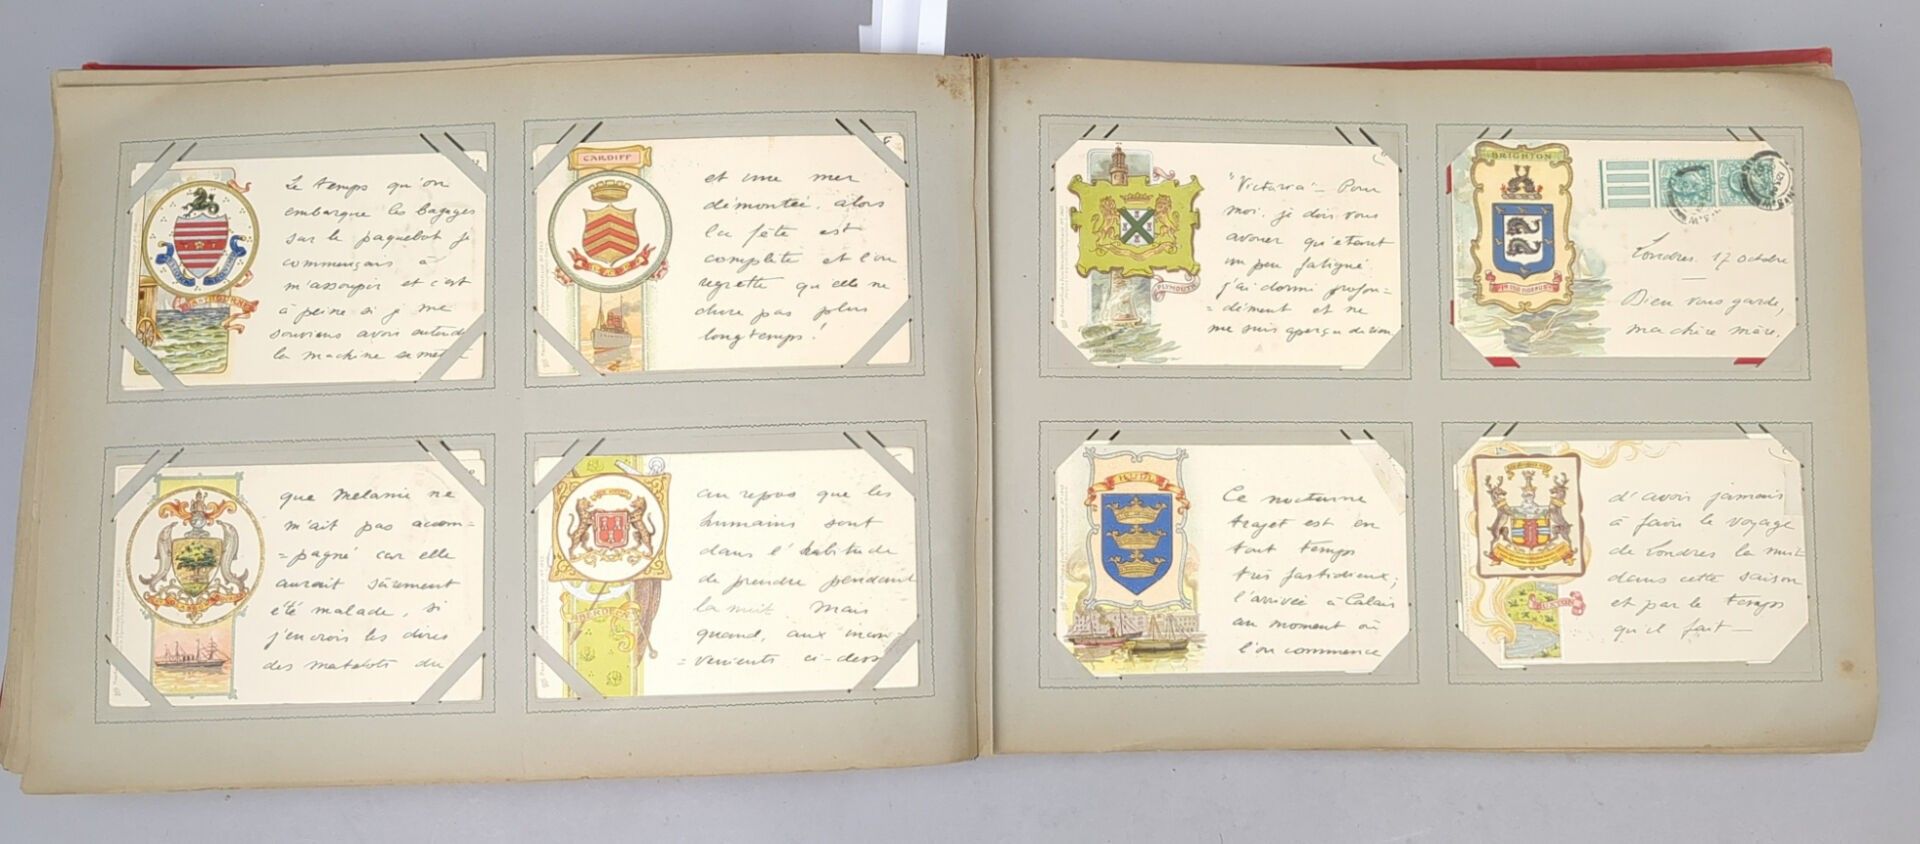 Le temps qu'on
embarque les bagages
sur le paquebot je
commençais à
m'assoupir et c'est
à peine si je me
souviens avoir entendu
la machine se mettre
CARDIFF
et une mer
démontée, alors
la fête est
complète et l'on
regrette qu'elle ne
dure pas plus
longtemps!
PLYMOUTH
"Victoria" — Pour
moi, je dois vous
avouer qu'étant
un peu fatigué
j'ai dormi profon-
=dément et ne
me suis aperçu de rien
BRIGHTON
Londres 17 octobre
—
Dieu vous garde,
ma chère mère,
que Melanie ne
m'ait pas accom-
=pagné car elle
aurait sûrement
été malade, si
j'en crois les dires
des matelots du
ABERDEEN
au repos que les
humains sont
dans l'habitude
de prendre pendant
la nuit. Mais
quand, aux incon-
=venients ci-dess
HULL
Ce nocturne
trajet est en
tout temps
très fastidieux;
l'arrivée à Calais
au moment où
l'on commence
BUXTON
d'avoir jamais
à faire le voyage
de Londres la nuit
dans cette saison
et par le temps
qu'il fait—